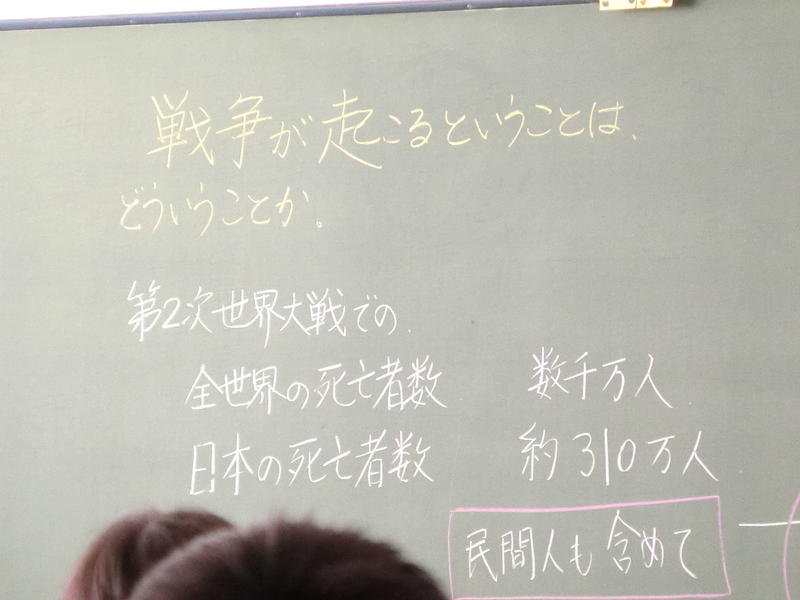 戦争が起こるということは、
どういうことか。
第2次世界大戦での
全世界の死亡者数 数千万人
日本の死亡者数 約310万人
民間人も含めて